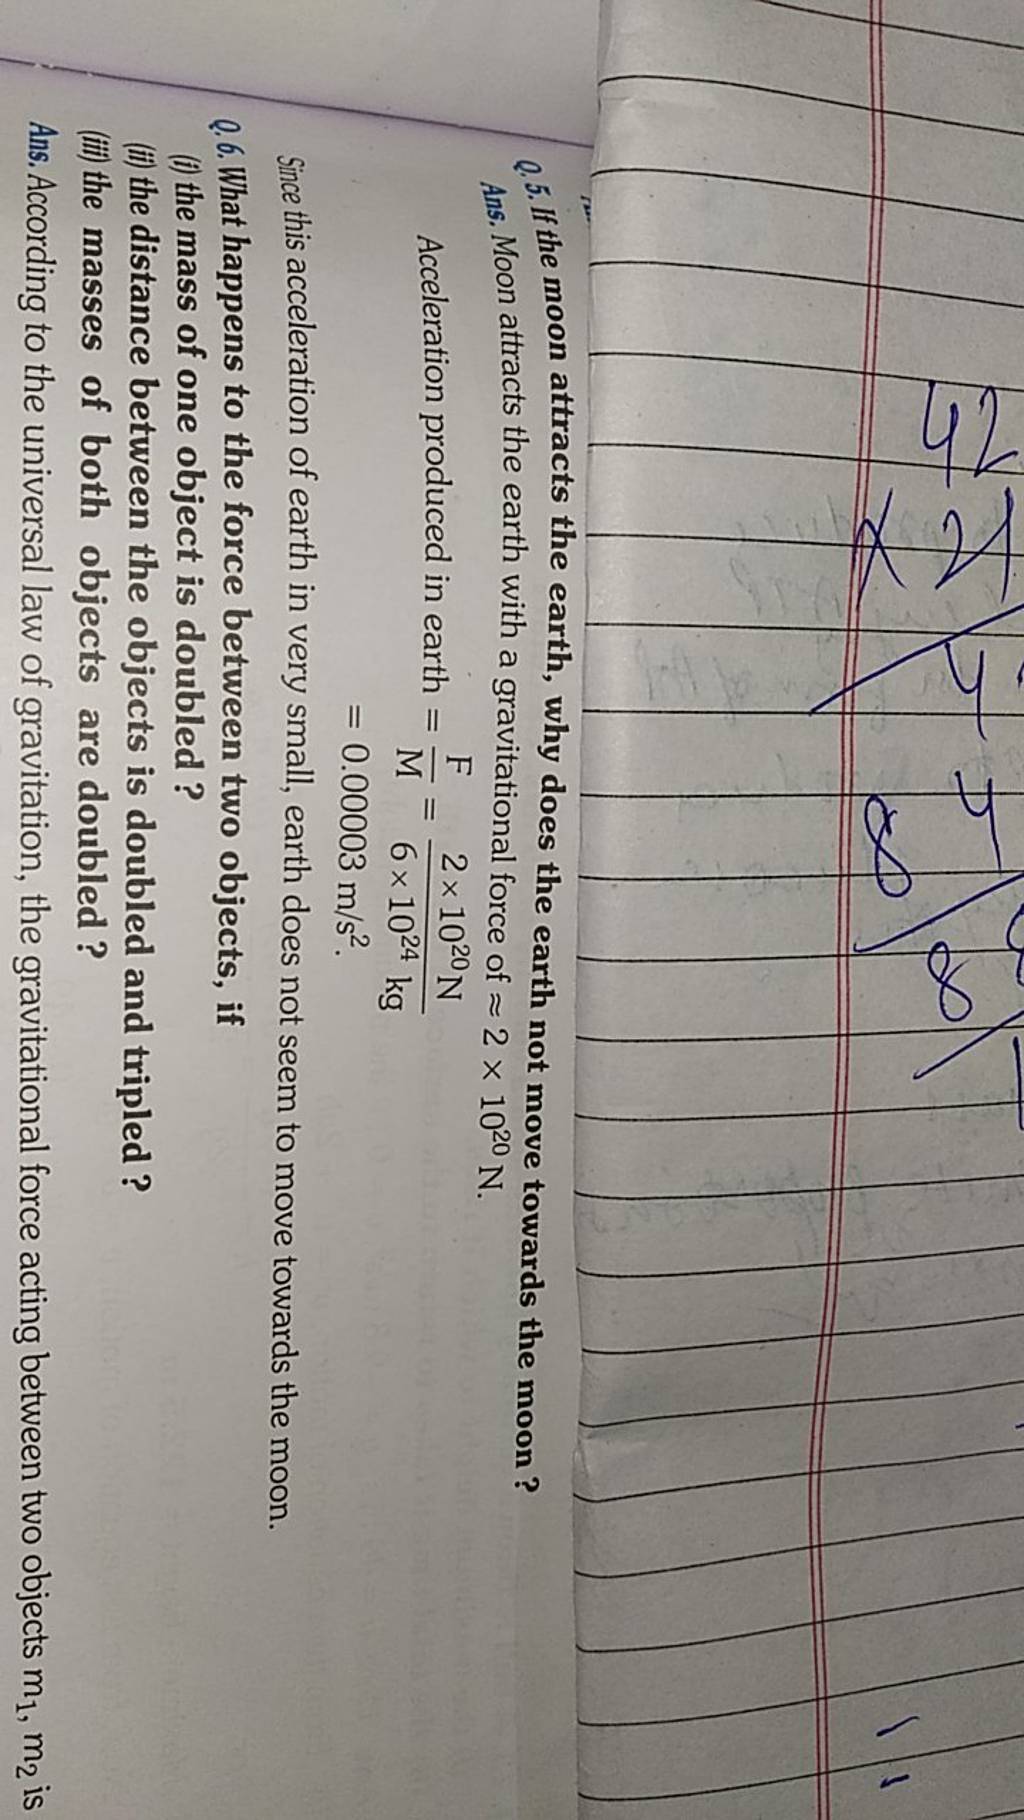 Q. 5. If the moon attracts the earth, why does the earth not move towards the moon ?
Ans. Moon attracts the earth with a gravitational force of ≈ 2 × 10²⁰ N.
Acceleration produced in earth = F/M = 2 × 10²⁰ N / 6 × 10²⁴ kg
= 0.00003 m/s².
Since this acceleration of earth in very small, earth does not seem to move towards the moon.
Q. 6. What happens to the force between two objects, if
(i) the mass of one object is doubled ?
(ii) the distance between the objects is doubled and tripled ?
(iii) the masses of both objects are doubled ?
Ans. According to the universal law of gravitation, the gravitational force acting between two objects m₁, m₂ is